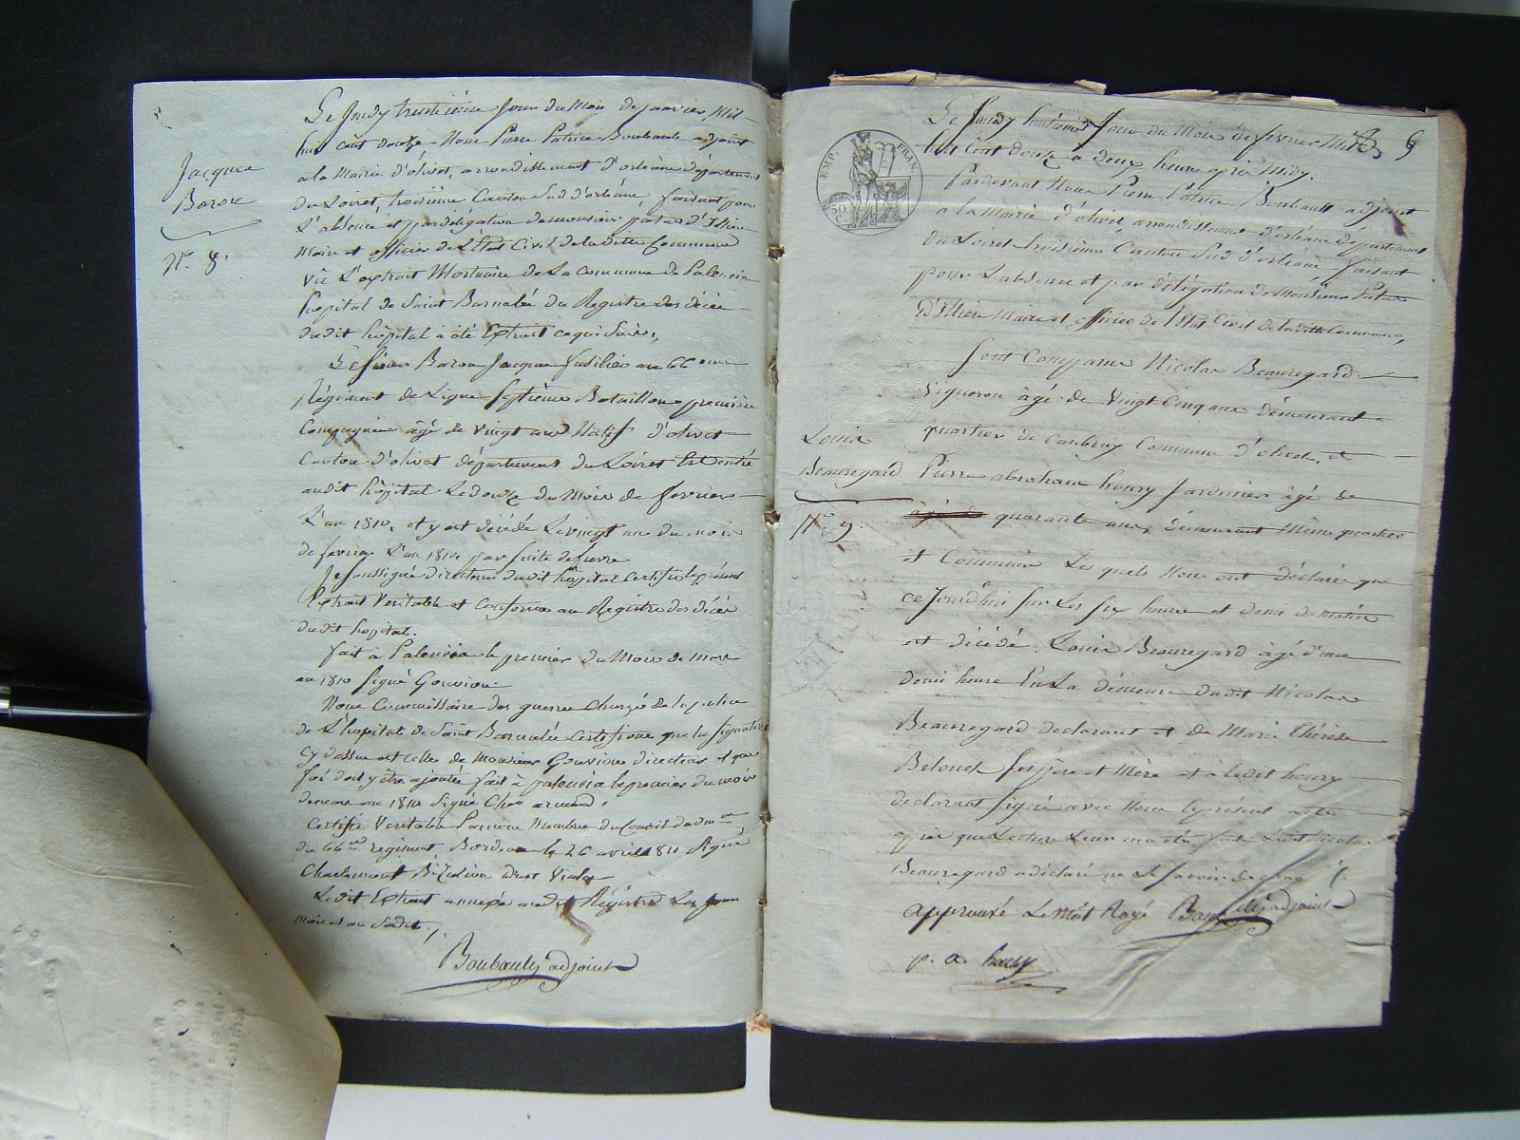 Jacques
Baron
N.° 8.
Le Jeudy trentième Jour du Mois de janvier Mil
huit cent douze Nous Pierre Patrice Boubault adjoint
a la Mairie d'olivet, arrondissement d'orléans département
du Loiret, troisième Canton Sud d'orléans, faisant pour
L'absence et par délégation de monsieur patas d'Illiers
Maire et officier de L'Etat Civil de la ditte Commune
vû L'extrait Mortuaire de La commune de Palencia
hopital de Saint Barnabé du Registre des décès
dudit hôpital à été Extrait ce qui suit,
Le sieur Baron Jacques fusilier au 66eme
Régiment de Ligne septième Bataillon première
Compagnie âgé de vingt ans Natif d'olivet
Canton d'olivet département du Loiret Est entré
audit hôpital Le douze du Mois de fevrier
L'an 1810, et y est décédé Le vingt un du mois
de fevrier L'an 1810 par suite de fievre
Je soussigné directeur dudit hôpital certifie le présent
Extrait Veritable et conforme au Registre des décès
du dit hopital.
fait à Palencia le premier du Mois de Mars
an 1810 Signé Gouvion
Nous Commissaire des guerres Chargé de la police
de L'hopital de Saint Barnabé Certifions que la signature
Cy dessus est celle de Monsieur Gouvion directeur et que
foi doit y être ajoutée fait à palencia le premier du mois
de mars an 1810 Signé armand.
Certifié Veritable Par Nous Membres du Conseil d'adm.on
du 66me régiment Bordeaux le 26 avril 1811 Signé
Le dit Extrait annexé audit Régistre Les Jour
mois et an Susdit,
Boubault adjoint
9
EMP. FRAN.
Le Jeudy huitième Jour du Mois de fevrier Mil
huit Cent douze a deux heures après Midy.
Pardevant Nous Pierre Patrice Boubault adjoint
a la Mairie d'olivet arrondissement d'orléans département
du Loiret troisième Canton Sud d'orléans faisant
pour L'absence et par délégation de Monsieur Patas
d'Illiers Maire et officier de l'Etat Civil de la ditte Commune,
Sont Comparus Nicolas Beauregard
Vigneron âgé de Vingt Cinq ans démeurant
quartier de Commune d'olivet, et
Louis
Beauregard
N.° 9.
Pierre abraham houry Jardinier âgé de
quarante ans, démeurant Même quartier
et Commune Les quels Nous ont déclaré que
ce Jourd'hui sur Les six heures et demi du matin
est décédé Louis Beauregard âgé d'une
demi heure En La démeure dudit Nicolas
Beauregard declarant et de Marie Thérèse
Belouet ses père et Mère et à ledit houry
declarant signé avec Nous le présent acte
après que Lecture Leur en a été fait Ledit Nicolas
Beauregard a déclaré ne Le Savoir de ce
approuvé Le Mot Rayé Boubault adjoint
p. a. houry